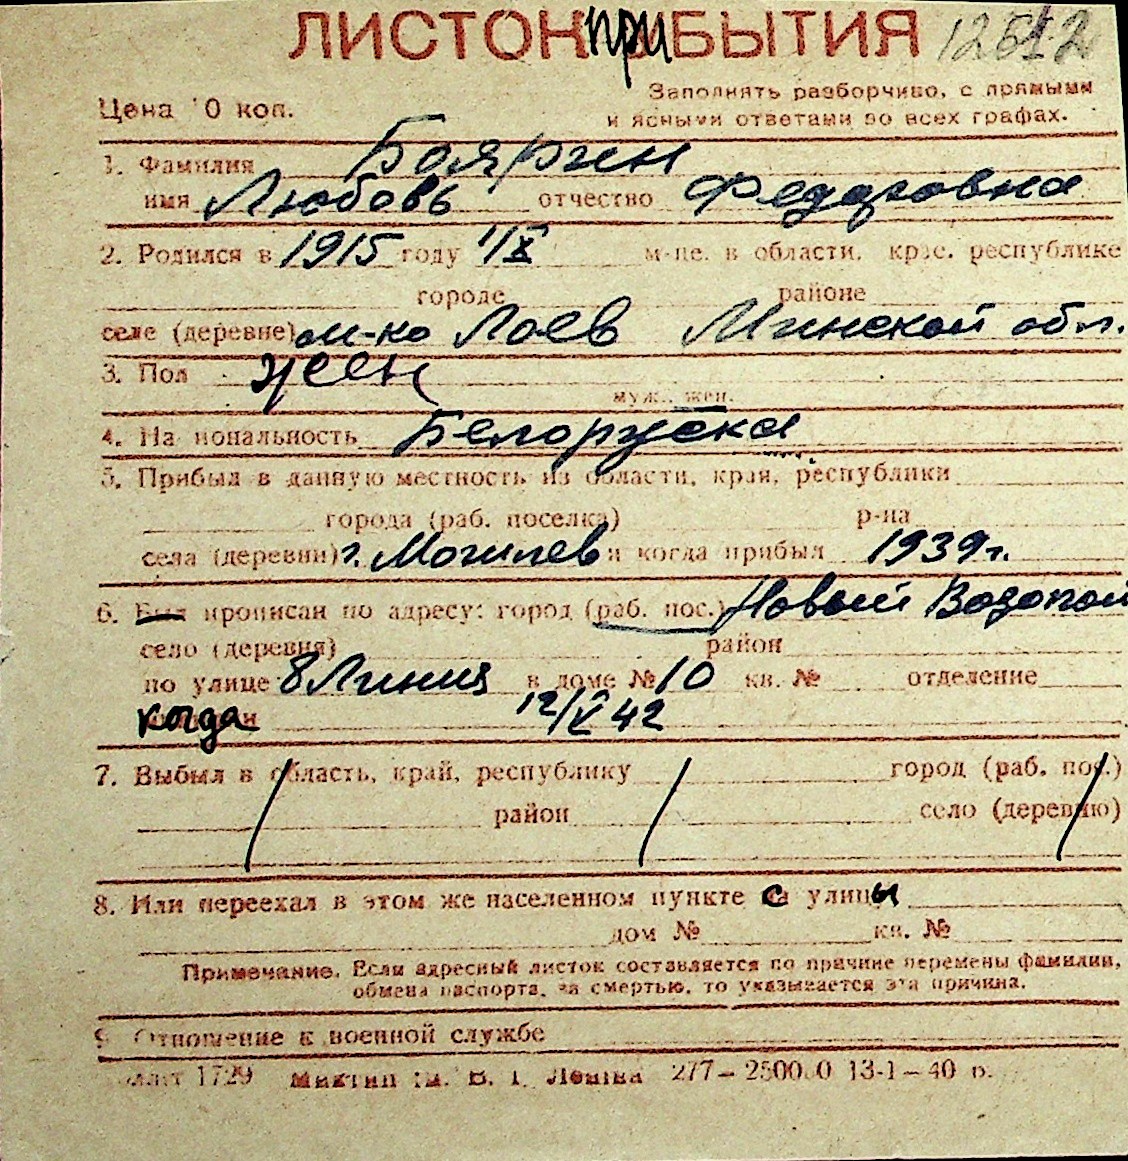 ЛИСТОК прИБЫТИЯ 12512
Цена 10 коп.
Заполнять разборчиво, с прямыми
и ясными ответами во всех графах.
1. Фамилия Бояргин
имя Любовь отчество Федоровна
2. Родился в 1915 году 1/X м-це. в области. крае. республике
городе районе
селе (деревне) м-ко Лоев Минской обл.
3. Пол жен
муж., жен.
4. Национальность Белоруска
5. Прибыл в данную местность из области, края, республики
города (раб. поселка) р-на
села (деревни) г. Могилев и когда прибыл 1939 г.
6. Был прописан по адресу: город (раб. пос.) Новый Водопой
село (деревня) район
по улице 8 Линия в доме № 10 кв. № отделение
когда 12/V 42
7. Выбыл в область, край, республику город (раб. пос.)
район село (деревню)
8. Или переехал в этом же населенном пункте с улицы
дом № кв. №
Примечание. Если адресный листок составляется по причине перемены фамилии,
обмена паспорта, за смертью, то указывается эта причина.
9. Отношение к военной службе
1729 им. В. І. Леніна 277–250000 13-1–40 р.